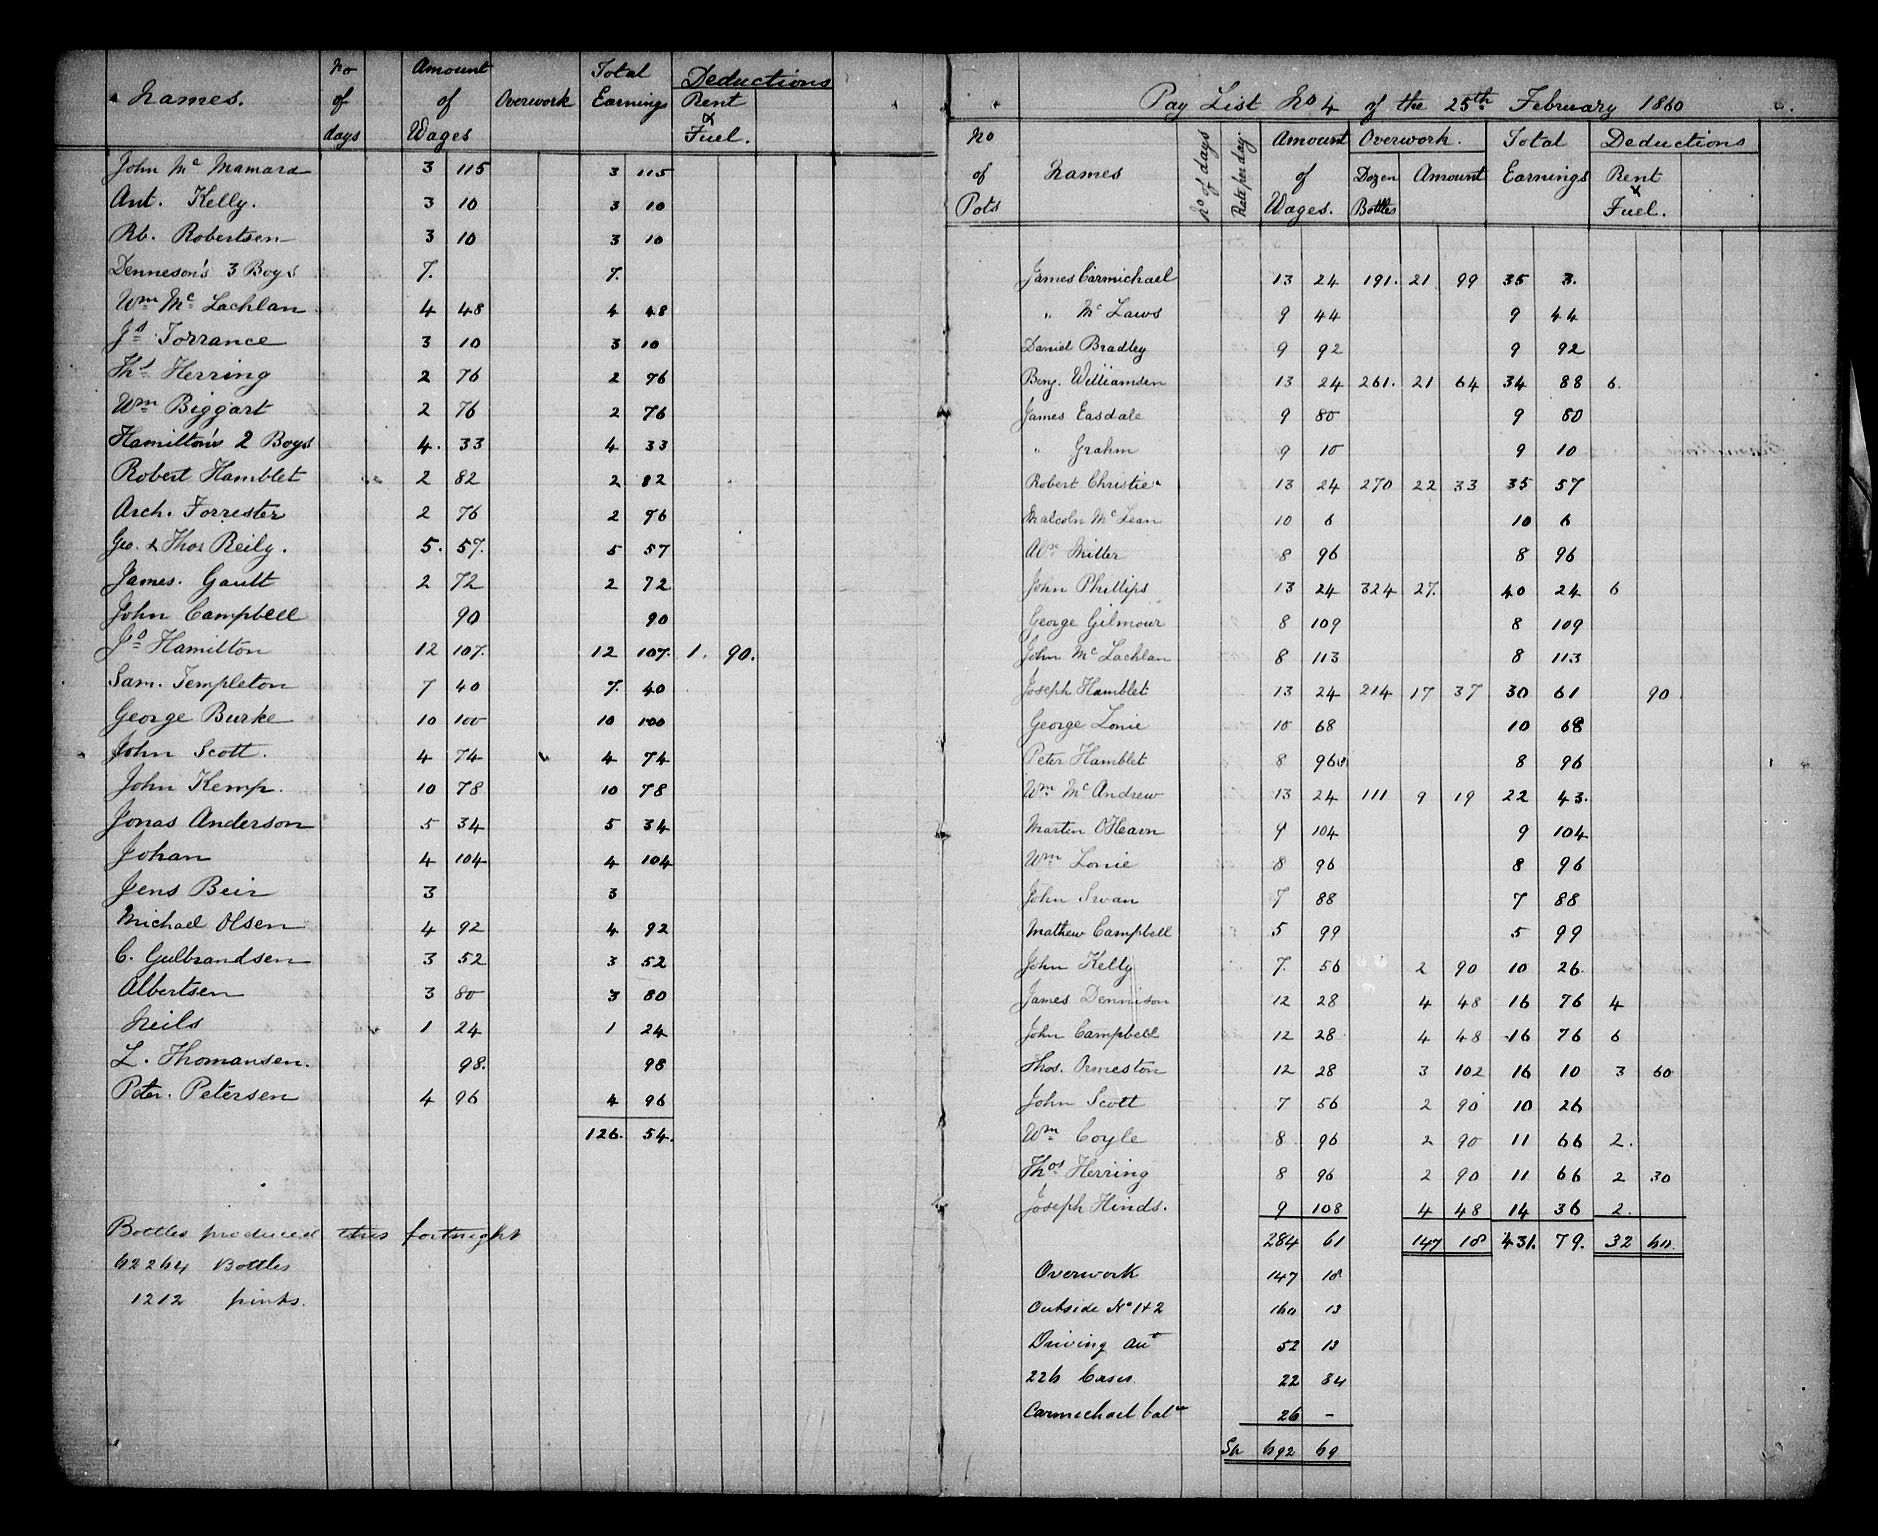 Names. No of days Amount of Wages Overwork Total Earnings Deductions Rent & Fuel.
John Mc Mamara 3 115 3 115
Ant. Kelly. 3 10 3 10
Rb. Robertsen 3 10 3 10
Denneson's 3 Boys 7. 7.
Wm Mc Lachlan 4 48 4 48
Js Torrance 3 10 3 10
Ths Herring 2 76 2 76
Wm Biggart 2 76 2 76
Hamilton's 2 Boys 4. 33 4 33
Robert Hamblet 2 82 2 82
Arch. Forrester 2 76 2 76
Geo. & Thos Reily. 5. 57. 5 57
James. Gault 2 72 2 72
John Campbell 90 90
Js Hamilton 12 107. 12 107. 1. 90.
Sam. Templeton 7 40 7. 40
George Burke 10 100 10 100
John Scott. 4 74 4 74
John Kemp. 10 78 10 78
Jonas Anderson 5 34 5 34
Johan 4 104 4 104
Jens Beir 3 3
Michael Olsen 4 92 4 92
C. Gulbrandsen 3 52 3 52
Albertsen 3 80 3 80
Neils 1 24 1 24
L. Thomansen. 98. 98
Peter. Petersen 4 96 4 96
126. 54.
Bottles produced this fortnight
62264 Bottles
1212 pints.
Pay List No 4 of the 25th February 1860
No of Pots Names No of days Rate per day. Amount of Wages. Overwork. Dozen Bottles Amount Total Earnings Deductions Rent & Fuel.
James Carmichael 13 24 191. 21 99 35 3.
" Mc Laws 9 44 9 44
Daniel Bradley 9 92 9 92
Benj. Williamsen 13 24 261. 21 64 34 88 6.
James Easdale 9 80 9 80
" Grahm 9 10 9 10
Robert Christie 13 24 270 22 33 35 57
Malcoln Mc Lean 10 6 10 6
Wm Miller 8 96 8 96
John Phillips 13 24 324 27. 40 24 6
George Gilmour 8 109 8 109
John Mc Lachlan 8 113 8 113
Joseph Hamblet 13 24 214 17 37 30 61 90
George Lonie 10 68 10 68
Peter Hamblet 8 96 8 96
Wm Mc Andrew 13 24 111 9 19 22 43.
Martin O'Hearn 9 104 9 104
Wm Lonie 8 96 8 96
John Swan 7 88 7 88
Mathew Campbell 5 99 5 99
John Kelly 7. 56 2 90 10 26
James Dennison 12 28 4 48 16 76 4
John Campbell 12 28 4 48 16 76 6
Thos. Ormeston 12 28 3 102 16 10 3 60
John Scott 7 56 2 90 10 26
Wm Coyle 8 96 2 90 11 66 2.
Thos Herring 8 96 2 90 11 66 2 30
Joseph Hinds. 9 108 4 48 14 36 2.
284 61 147 18 431. 79. 32 60.
Overwork 147 18
Outside No 1 & 2 160 13
Driving 52 13
226 Cases 22 84
Carmichael balce 26 –
692 69